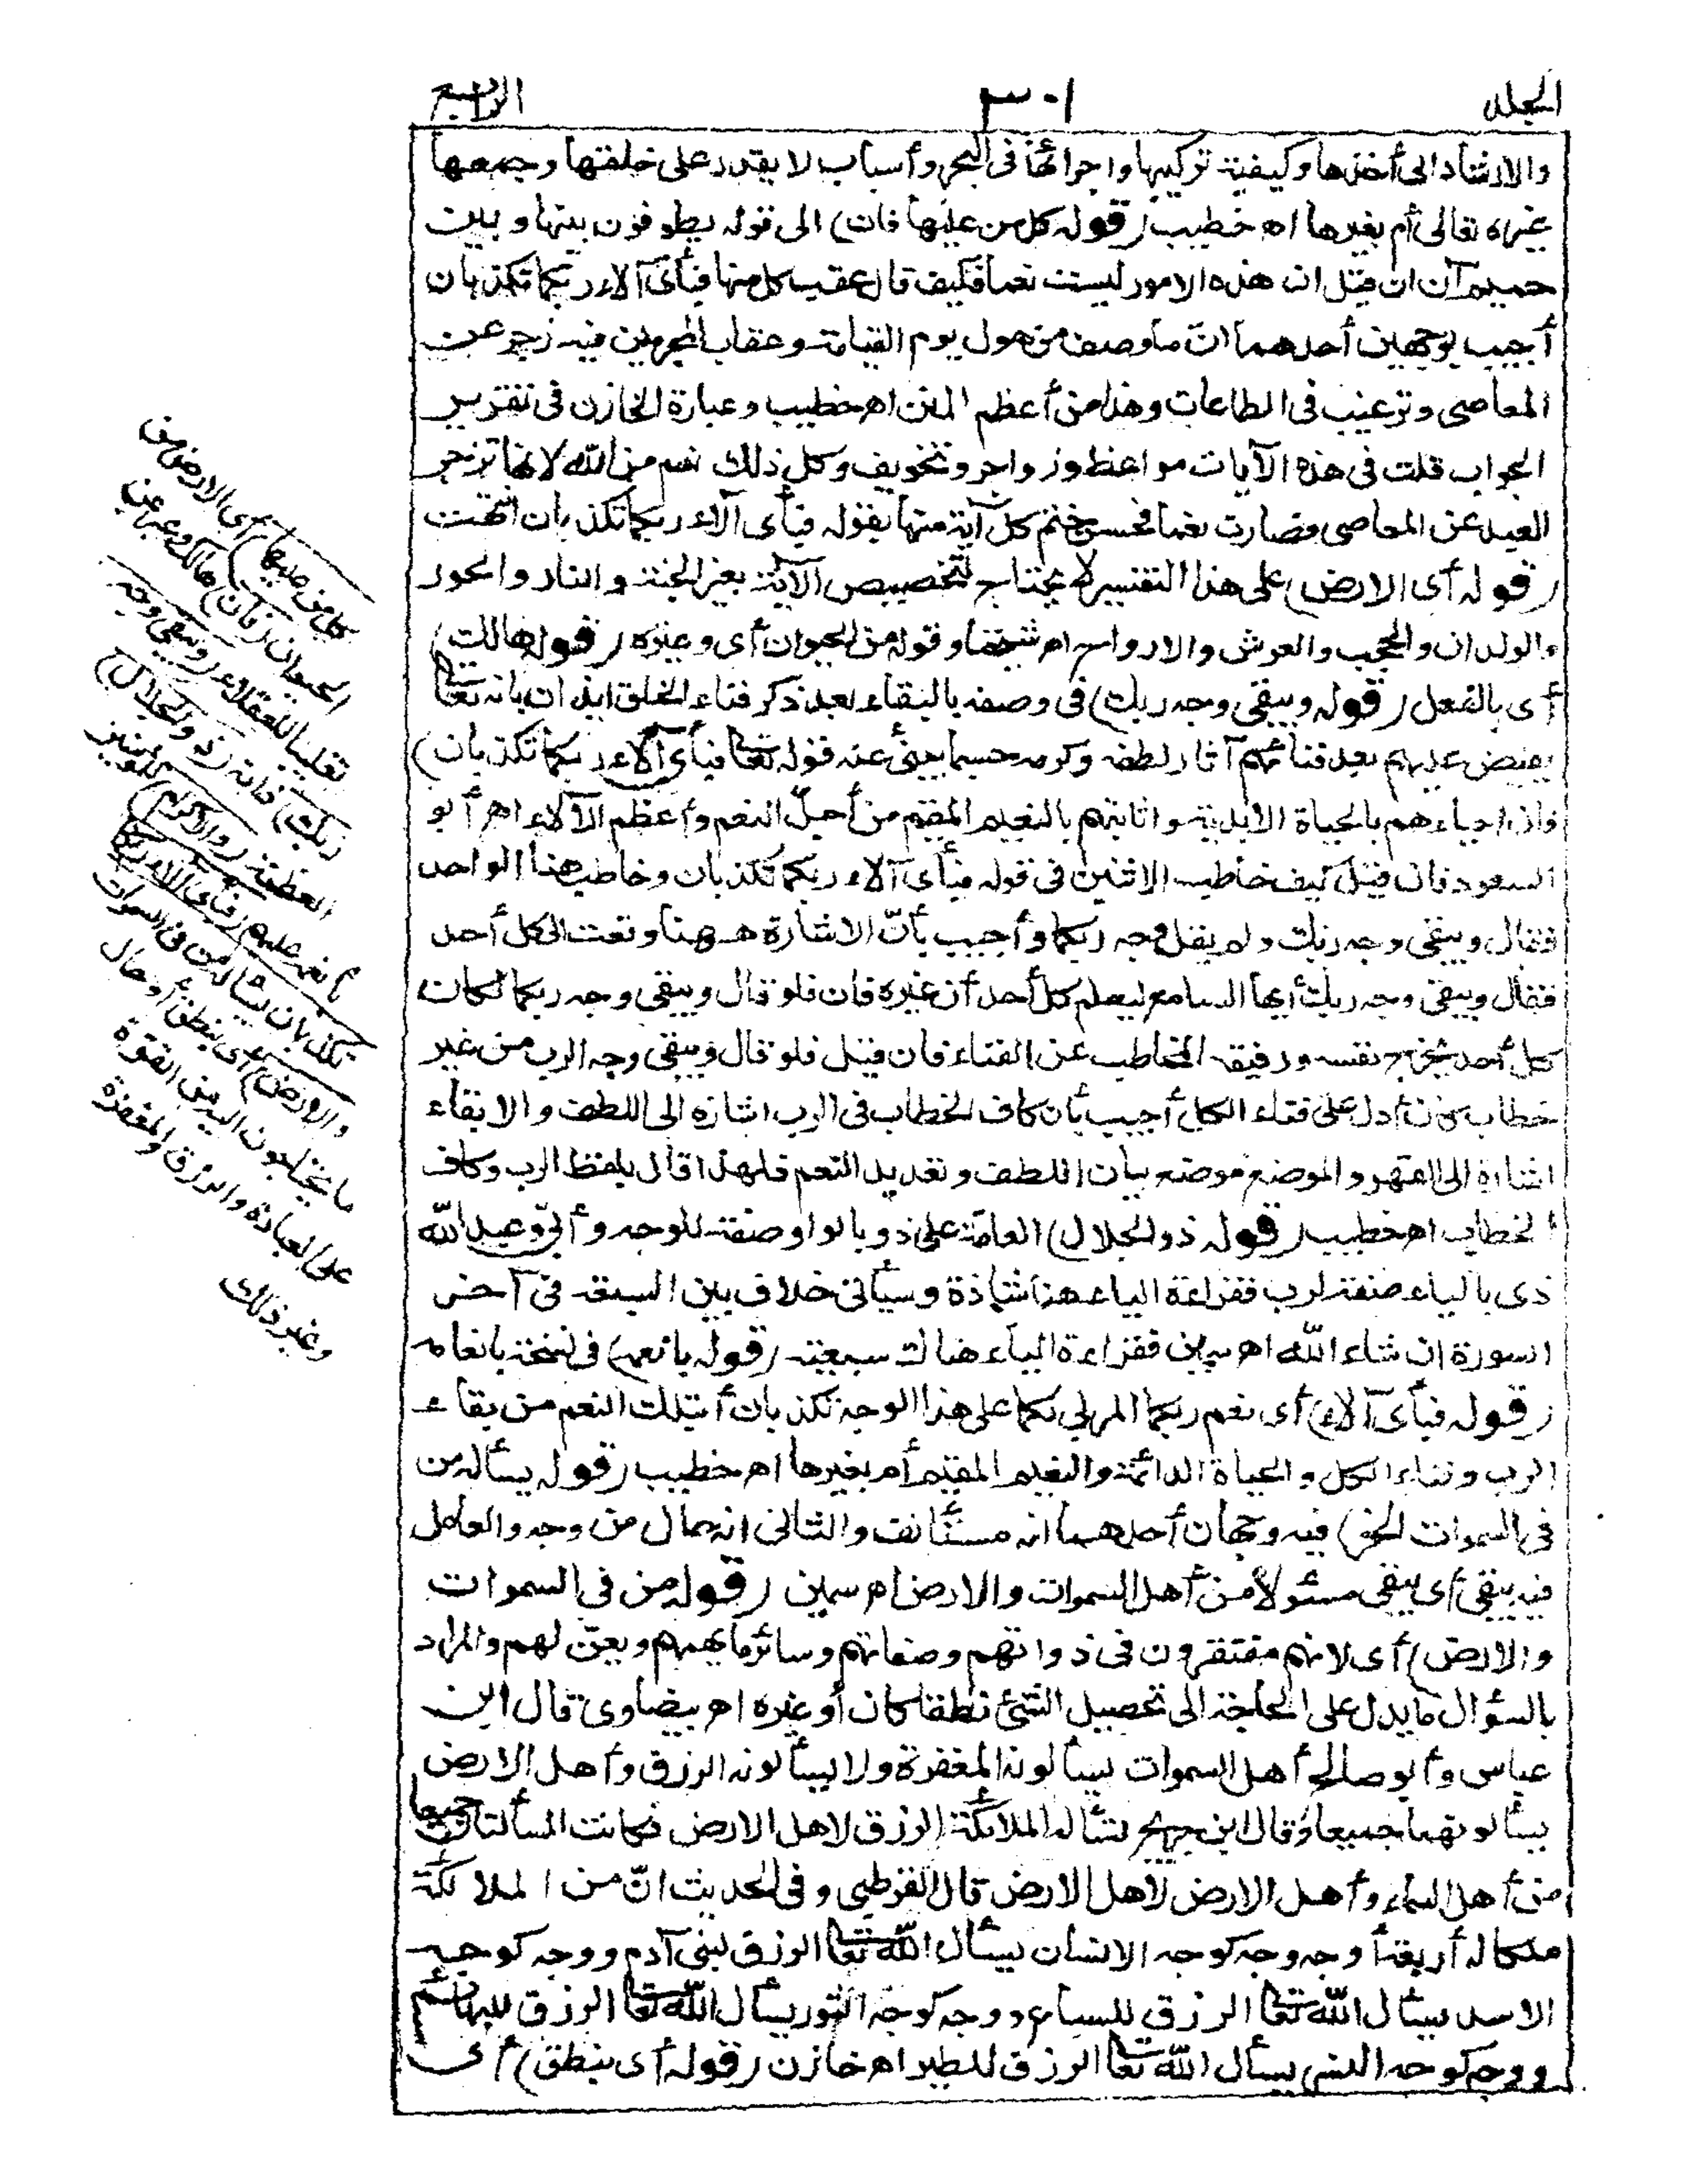 الجلد ٣٠١ الرابع
والارشاد الى أخذها وكيفية تركيبها واجرائها فى البحر وأسباب لا يقدر على خلقتها وجمعها
غيره تعالى أم بغيرها اه خطيب (قوله كل من عليها فان) الى قوله يطوفون بينها وبين
حميم آن ان قيل ان هذه الامور ليست نعما فكيف قال عقب كل منها فبأى آلاء ربكما تكذبان
أجيب بوجهين أحدهما انّ ما وصف من هول يوم القيامة وعقاب المجرمين فيه زجر عن
المعاصى وترغيب فى الطاعات وهذا من أعظم المنن اه خطيب وعبارة الخازن فى تقرير
الجواب قلت فى هذه الآيات مواعظ وزواجر وتخويف وكل ذلك نعم من الله لانها تزجر
العبد عن المعاصى فصارت نعما فحسن ختم كل آية منها بقوله فبأى آلاء ربكما تكذبان انتهت
(قوله أى الارض) على هذا التفسير لا يحتاج لتخصيص الآية بغير الجنة والنار والحور
والولدان والحجب والعرش والارواح اه شيخنا وقوله من الحيوان أى وغيره (قوله هالك)
أى بالفعل (قوله ويبقى وجه ربك) فى وصفه بالبقاء بعد ذكر فناء الخلق ايذان بانه تعالى
يفيض عليهم بعد فنائهم آثار لطفه وكرمه حسبما ينبئ عنه قوله تعالى فبأى آلاء ربكما تكذبان)
فان احياءهم بالحياة الأبدية واثابتهم بالنعيم المقيم من أجلّ النعم وأعظم الآلاء اه أبو
السعود فان قيل كيف خاطب الاثنين فى قوله فبأى آلاء ربكما تكذبان وخاطب هنا الواحد
فقال ويبقى وجه ربك ولم يقل وجه ربكما وأجيب بأنّ الاشارة ههنا وقعت الى كل أحد
فقال ويبقى وجه ربك أيها السامع ليعلم كل أحد أن غيره فان فلو قال ويبقى وجه ربكما لكان
كل أحد يخرج نفسه ورفيقه المخاطب عن الفناء فان قيل فلو قال ويبقى وجه الرب من غير
خطاب كان أدل على فناء الكل أجيب بأن كاف الخطاب فى الرب اشارة الى اللطف والابقاء
اشارة الى القهر والموضع موضع بيان اللطف وتعديد النعم فلهذا قال بلفظ الرب وكاف
الخطاب اه خطيب (قوله ذو الجلال) العامّة على ذو بالواو صفة للوجه وأبىّ وعبد الله
ذى بالياء صفة لرب فقراءة الياء هنا شاذة وسيأتى خلاف بين السبعة فى آخر
السورة ان شاء الله اه سمين فقراءة الياء هناك سبعية (قوله بانعمه) فى نسخة بانعامه
(قوله فبأى آلاء) أى نعم ربكما المربى لكما على هذا الوجه تكذبان أبتلك النعم من بقاء
الرب وفناء الكل والحياة الدائمة والنعيم المقيم أم بغيرها اه خطيب (قوله يسأله من
فى السموات الخ) فيه وجهان أحدهما انه مستأنف والثانى انه حال من وجه والعامل
فيه يبقى أى يبقى مسئولا من أهل السموات والارض اه سمين (قوله من فى السموات
والارض) أى لانهم مفتقرون فى ذواتهم وصفاتهم وسائر ما يهمهم ويعنّ لهم والمراد
بالسؤال ما يدل على الحاجة الى تحصيل الشئ نطقا كان أو غيره اه بيضاوى قال ابن
عباس وأبو صالح أهل السموات يسألونه المغفرة ولا يسألونه الرزق وأهل الارض
يسألونهما جميعا وقال ابن جريج تسأله الملائكة الرزق لاهل الارض فكانت المسألتان جميعا
من أهل السماء وأهل الارض لاهل الارض قال القرطبى وفى الحديث انّ من الملائكة
ملكا له أربعة أوجه وجه كوجه الانسان يسأل الله تعالى الرزق لبنى آدم ووجه كوجه
الاسد يسأل الله تعالى الرزق للسباع ووجه كوجه الثور يسأل الله تعالى الرزق للبهائم
ووجه كوجه النسر يسأل الله تعالى الرزق للطير اه خازن (قوله أى ينطق) أى
كل من عليها) أى الارض من
الحيوان (فان) هالك وعبر بمن
تغليبا للعقلاء (ويبقى وجه
ربك) ذاته (ذو الجلال)
العظمة (والاكرام) للمؤمنين
بأنعمه عليهم (فبأى آلاء ربكما
تكذبان يسأله من فى السموات
والارض) أى ينطق أو حال
ما يحتاجون اليه من القوة
على العبادة والرزق والمغفرة
وغير ذلك